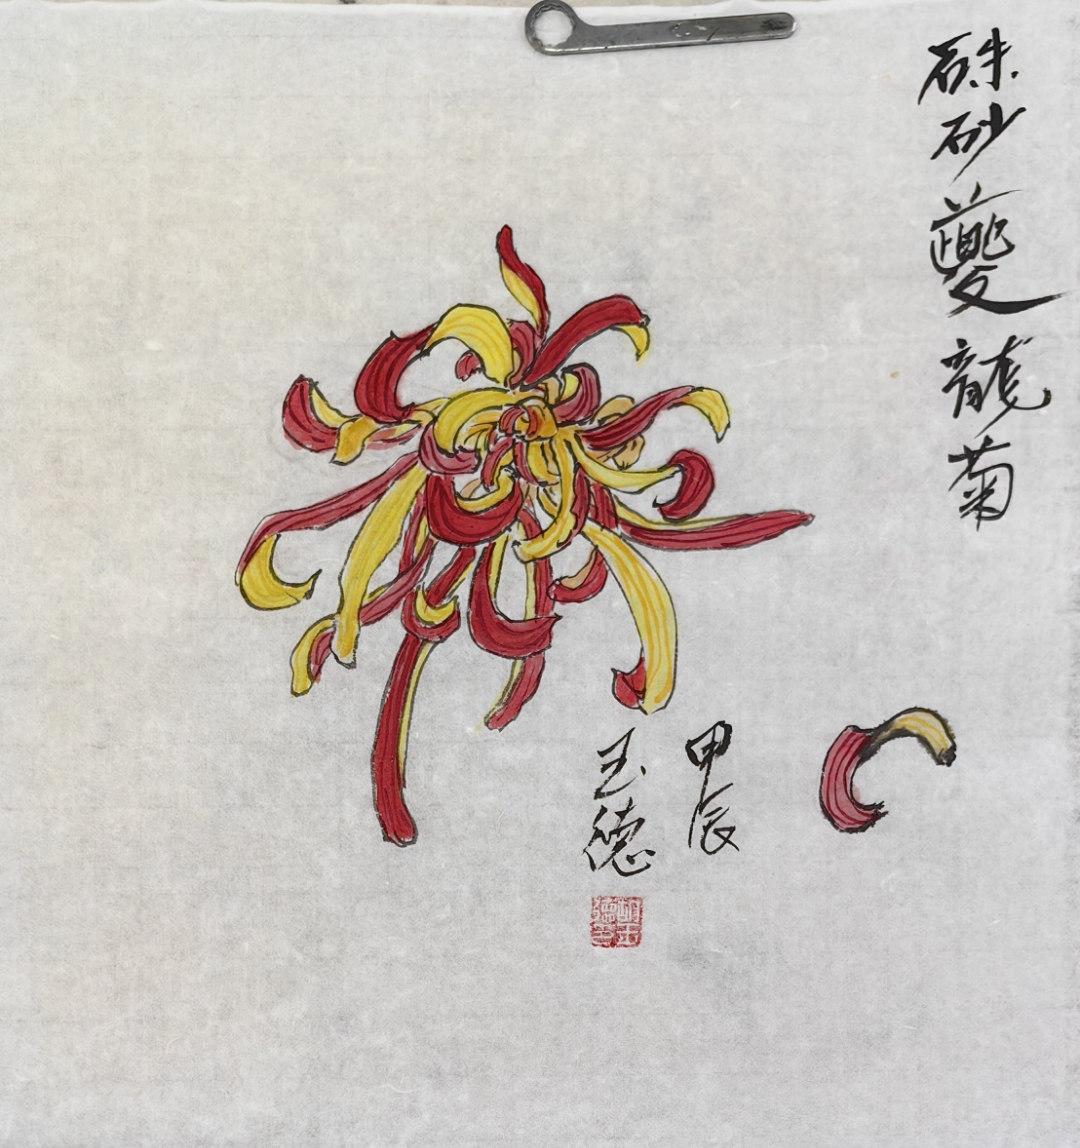 硃砂夔龍菊
甲辰
玉德